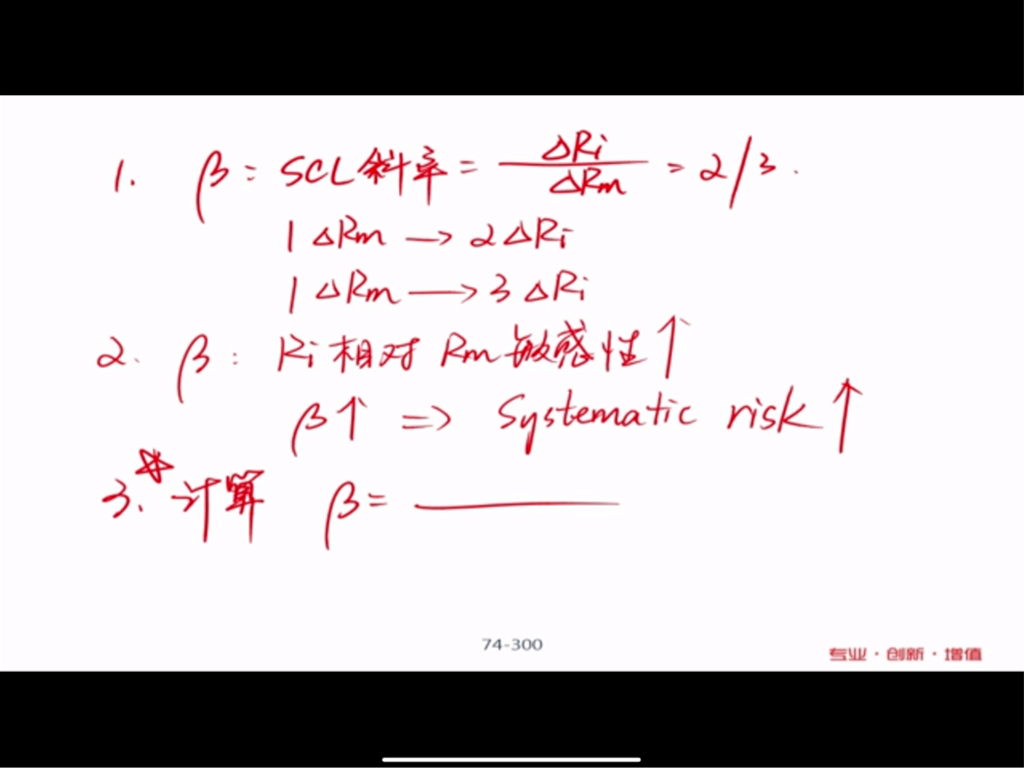 1. β: SCL斜率 = ΔRi / ΔRm = 2/3.
1 ΔRm → 2 ΔRi
1 ΔRm → 3 ΔRi
2. β: Ri相对 Rm敏感性↑
β↑ => Systematic risk↑
3.☆计算 β=
74-300
专业·创新·增值